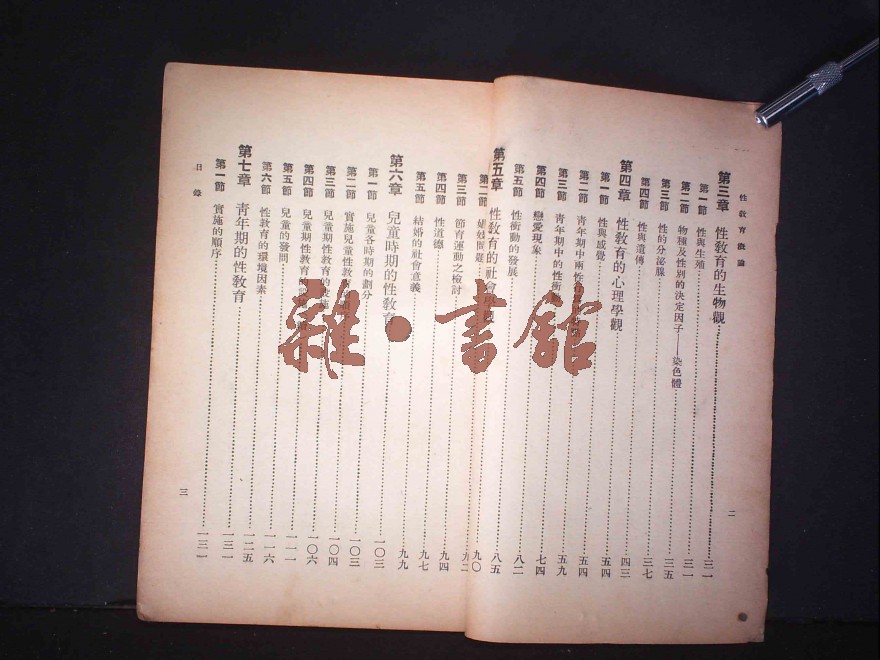 性教育概論
第三章 性教育的生物觀 三一
第一節 性與生殖 三一
第二節 物種及性別的決定因子——染色體 三五
第三節 性的分泌腺 三七
第四節 性與遺傳 四三
第四章 性教育的心理學觀 五四
第一節 性與感覺 五四
第二節 青年期中兩性 五九
第三節 青年期中的性衝 七四
第四節 戀愛現象 八二
第五節 性衝動的發展 八五
二
第五章 性教育的社會 九〇
第二節 問題 九二
第三節 節育運動之檢討 九四
第四節 性道德 九七
第五節 結婚的社會意義 九九
第六章 兒童時期的性教育 一〇三
第一節 兒童各時期的劃分 一〇三
第二節 實施兒童性教育 一〇四
第三節 兒童期性教育的 一〇六
第四節 兒童期性教育的 一一一
第五節 兒童的發問 一一六
第六節 性教育的環境因素 一二五
第七章 青年期的性教育 一三一
第一節 實施的順序 一三一
目錄
三
雜·書館